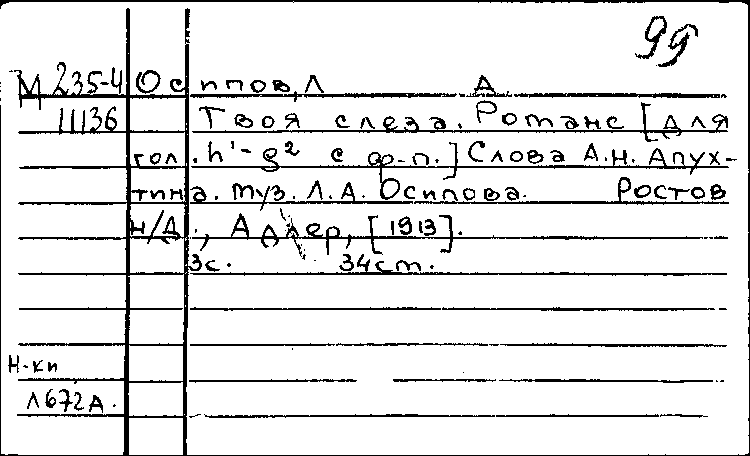 99
М 235-4 Осипов, Л А
11136 Твоя слеза. Романс [для
гол. h¹-g² с ф-п.] Слова А.Н. Апух-
тина. Муз. Л.А. Осипова. Ростов
н/Д., Адлер, [1913].
3с. 34см.
Н-ки
Л672А.